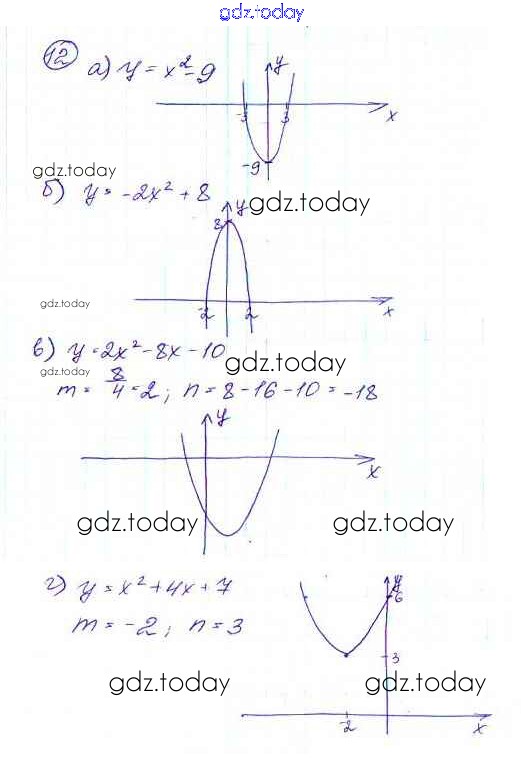 gdz.today
12
а) y = x² - 9
y
-3 3 x
-9
gdz.today
б) y = -2x² + 8
gdz.today
y
8
gdz.today
-2 2 x
в) y = 2x² - 8x - 10
gdz.today
gdz.today
m = 8/4 = 2; n = 8 - 16 - 10 = -18
y
x
gdz.today gdz.today
г) y = x² + 4x + 7
y
6
m = -2; n = 3
3
gdz.today gdz.today
-2 x